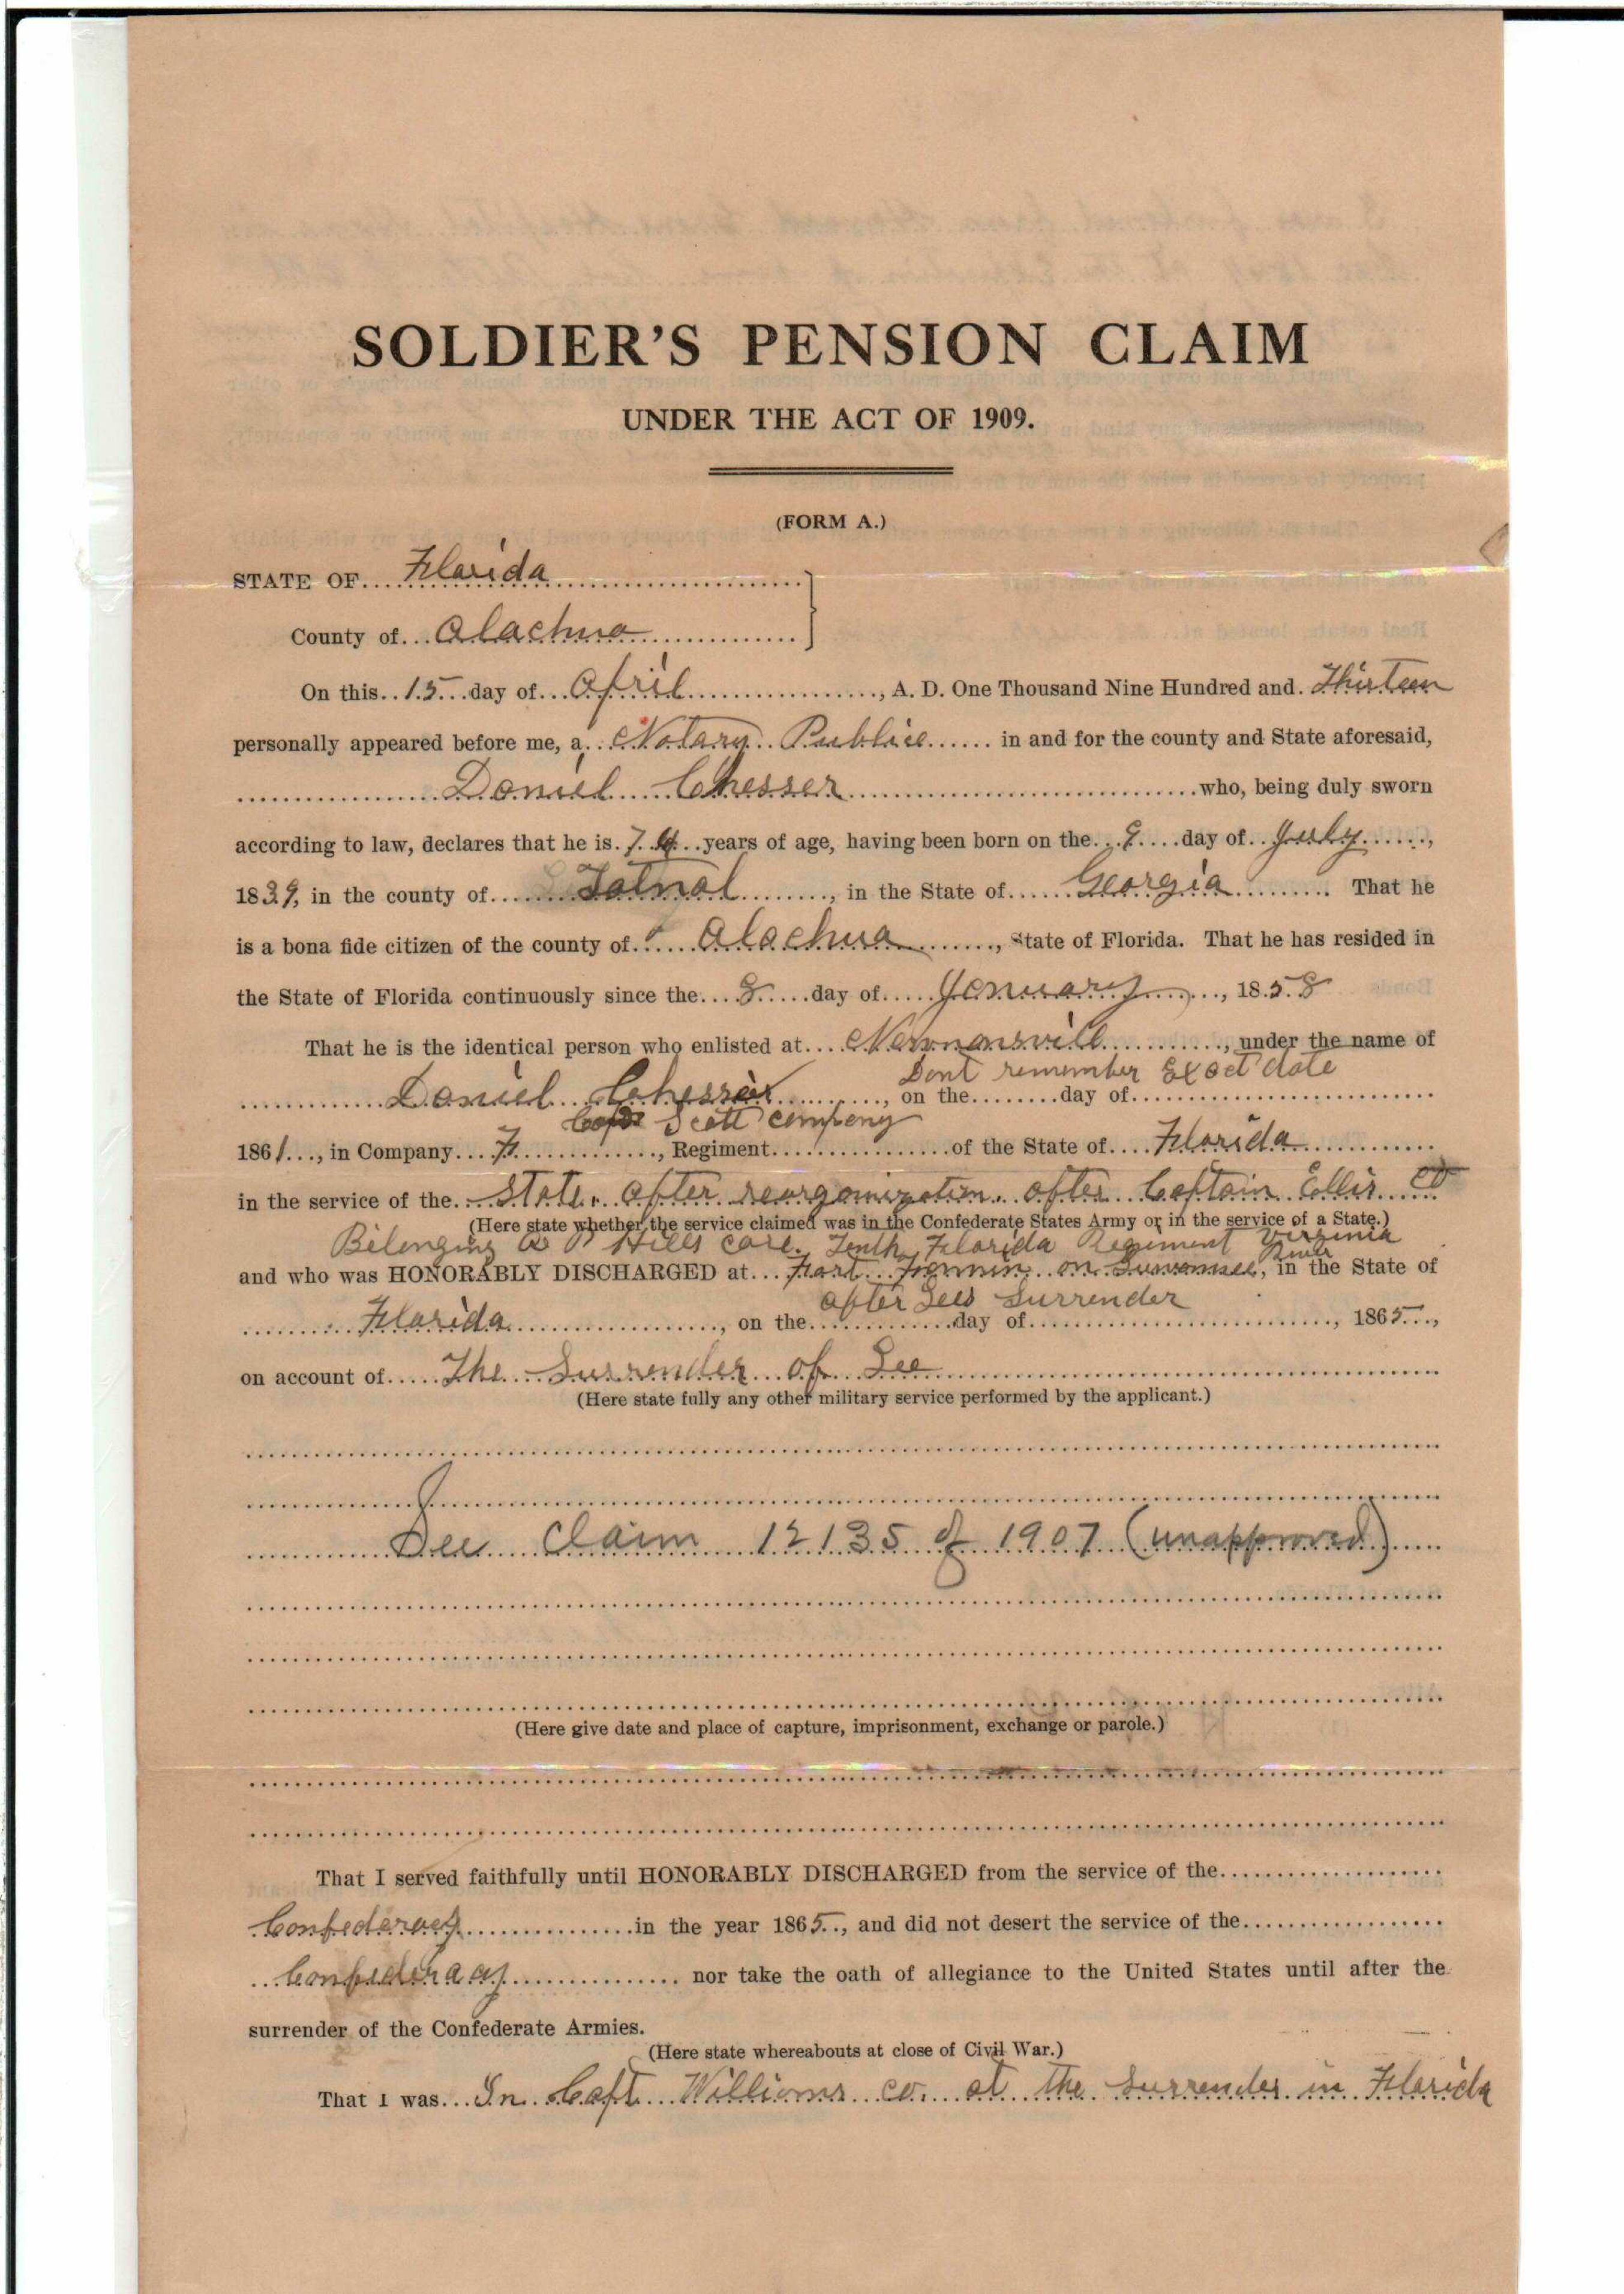 SOLDIER'S PENSION CLAIM
UNDER THE ACT OF 1909.
(FORM A.)
STATE OF Florida
County of Alachua
On this 15 day of April, A. D. One Thousand Nine Hundred and Thirteen
personally appeared before me, a Notary Public in and for the county and State aforesaid,
Daniel Chesser who, being duly sworn
according to law, declares that he is 74 years of age, having been born on the 9 day of July,
1839, in the county of Tatnal, in the State of Georgia That he
is a bona fide citizen of the county of Alachua, State of Florida. That he has resided in
the State of Florida continuously since the 8 day of January, 1858
That he is the identical person who enlisted at Newnansvill, under the name of
Dont remember Exact date
Daniel Chesser, on the day of
Capt Scott company
1861, in Company F, Regiment of the State of Florida
in the service of the State. after reorganization after Captain Ellis Co
(Here state whether the service claimed was in the Confederate States Army or in the service of a State.)
Belonging A P Hills Tenth Florida Regiment Virginia
River
and who was HONORABLY DISCHARGED at Fort on Suwannee, in the State of
after Lees Surrender
Florida, on the day of, 1865,
on account of The Surrender of Lee
(Here state fully any other military service performed by the applicant.)
See Claim 12135 of 1907 (unapproved)
(Here give date and place of capture, imprisonment, exchange or parole.)
That I served faithfully until HONORABLY DISCHARGED from the service of the
Confederacy in the year 1865, and did not desert the service of the
Confederacy nor take the oath of allegiance to the United States until after the
surrender of the Confederate Armies.
(Here state whereabouts at close of Civil War.)
That I was In Capt Williams co. at the surrender in Florida